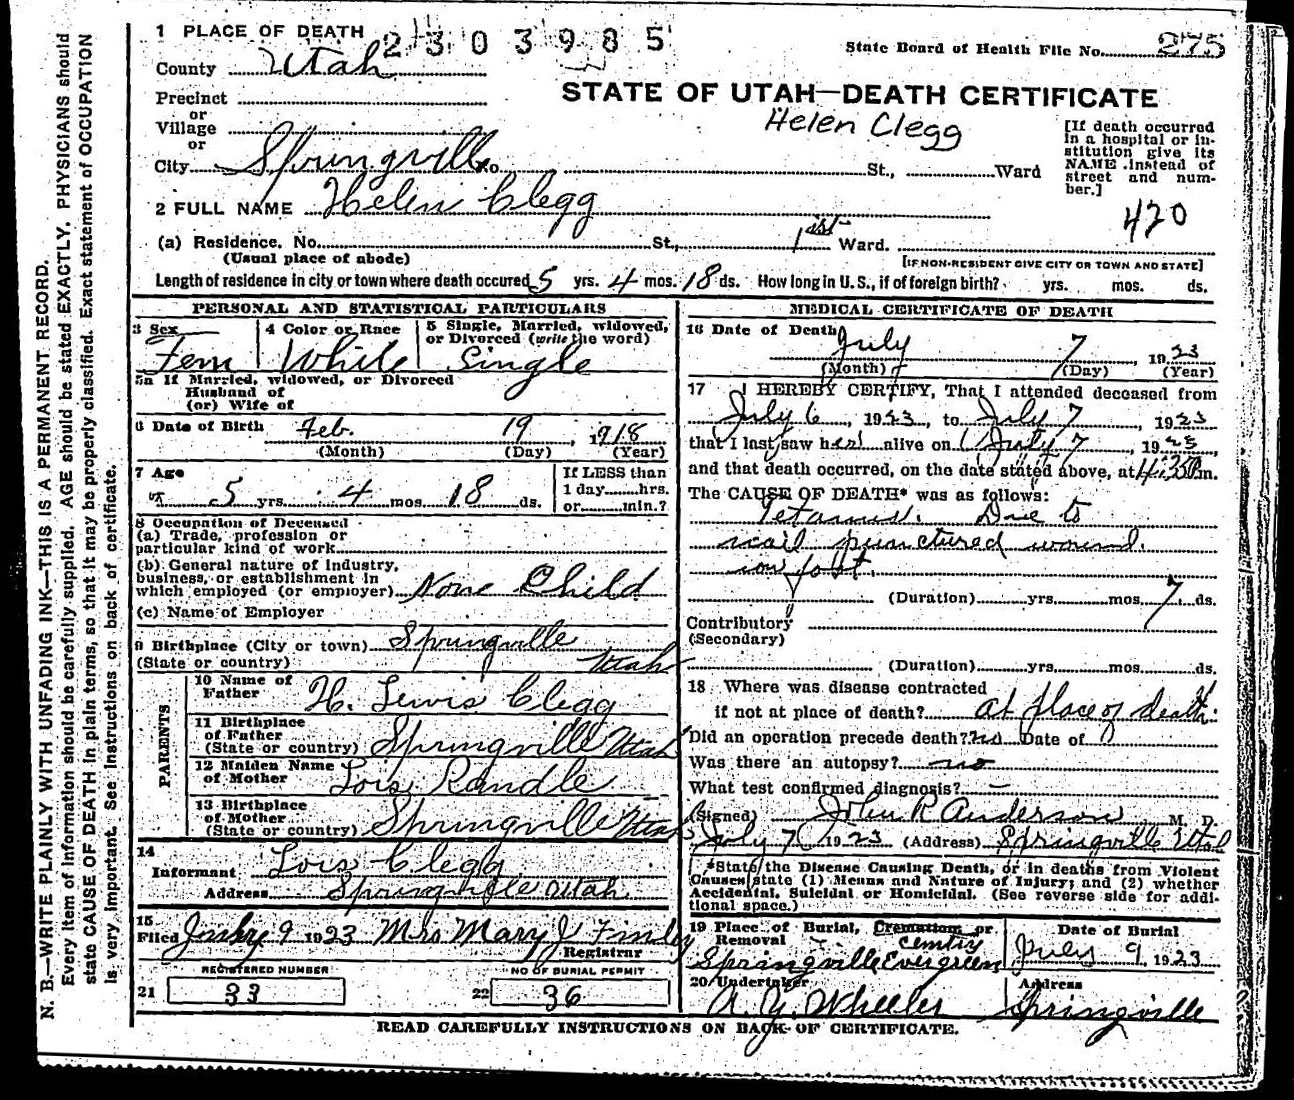 1 PLACE OF DEATH 2303985
State Board of Health File No. 275
County Utah
STATE OF UTAH—DEATH CERTIFICATE
Precinct
or
Village
or
Helen Clegg
[If death occurred in a hospital or in-
stitution give its
NAME instead of
street and num-
ber.]
City Springville No. St., Ward
2 FULL NAME Helen Clegg
420
(a) Residence. No. St., 1st Ward.
(Usual place of abode)
[IF NON-RESIDENT GIVE CITY OR TOWN AND STATE]
Length of residence in city or town where death occured 5 yrs. 4 mos. 18 ds. How long in U. S., if of foreign birth? yrs. mos. ds.
PERSONAL AND STATISTICAL PARTICULARS
3 Sex
Fem
4 Color or Race
White
5 Single, Married, widowed,
or Divorced (write the word)
Single
5a If Married, widowed, or Divorced
Husband of
(or) Wife of
6 Date of Birth Feb. 19, 1918
(Month) (Day) (Year)
7 Age
5 yrs. 4 mos. 18 ds.
If LESS than
1 day........hrs.
or.........min.?
8 Occupation of Deceased
(a) Trade, profession or
particular kind of work
(b) General nature of Industry,
business, or establishment in
which employed (or employer) None Child
(c) Name of Employer
9 Birthplace (City or town) Springville
(State or country) Utah
PARENTS
10 Name of
Father H. Lewis Clegg
11 Birthplace
of Father
(State or country) Springville Utah
12 Maiden Name
of Mother Lois Randle
13 Birthplace
of Mother
(State or country) Springville Utah
14
Informant Lois Clegg
Address Springville Utah
15
Filed July 9 1923 Mrs Mary J Finley
Registrar
REGISTERED NUMBER
21 33
NO OF BURIAL PERMIT
22 36
MEDICAL CERTIFICATE OF DEATH
16 Date of Death
July 7, 1923
(Month) (Day) (Year)
17 I HEREBY CERTIFY, That I attended deceased from
July 6, 1923, to July 7, 1923
that I last saw her alive on July 7, 1923
and that death occurred, on the date stated above, at 4:30 P.m.
The CAUSE OF DEATH* was as follows:
Tetanus. Due to
nail punctured wound
on foot.
(Duration) yrs. mos. 7 ds.
Contributory
(Secondary)
(Duration) yrs. mos. ds.
18 Where was disease contracted
if not at place of death? at place of death.
Did an operation precede death? no Date of
Was there an autopsy? no
What test confirmed diagnosis? –
(Signed) John R Anderson M. D.
July 7 1923 (Address) Springville Utah
*State the Disease Causing Death, or in deaths from Violent
Causes state (1) Means and Nature of Injury; and (2) whether
Accidental, Suicidal or Homicidal. (See reverse side for addi-
tional space.)
19 Place of Burial, Cremation or
Removal
Springville Evergreen
Date of Burial
July 9 1923
20 Undertaker
A. Y. Wheeler
Address
Springville
READ CAREFULLY INSTRUCTIONS ON BACK OF CERTIFICATE.
N. B.—WRITE PLAINLY WITH UNFADING INK—THIS IS A PERMANENT RECORD.
Every item of information should be carefully supplied. AGE should be stated EXACTLY. PHYSICIANS should
state CAUSE OF DEATH in plain terms, so that it may be properly classified. Exact statement of OCCUPATION
is very important. See instructions on back of certificate.